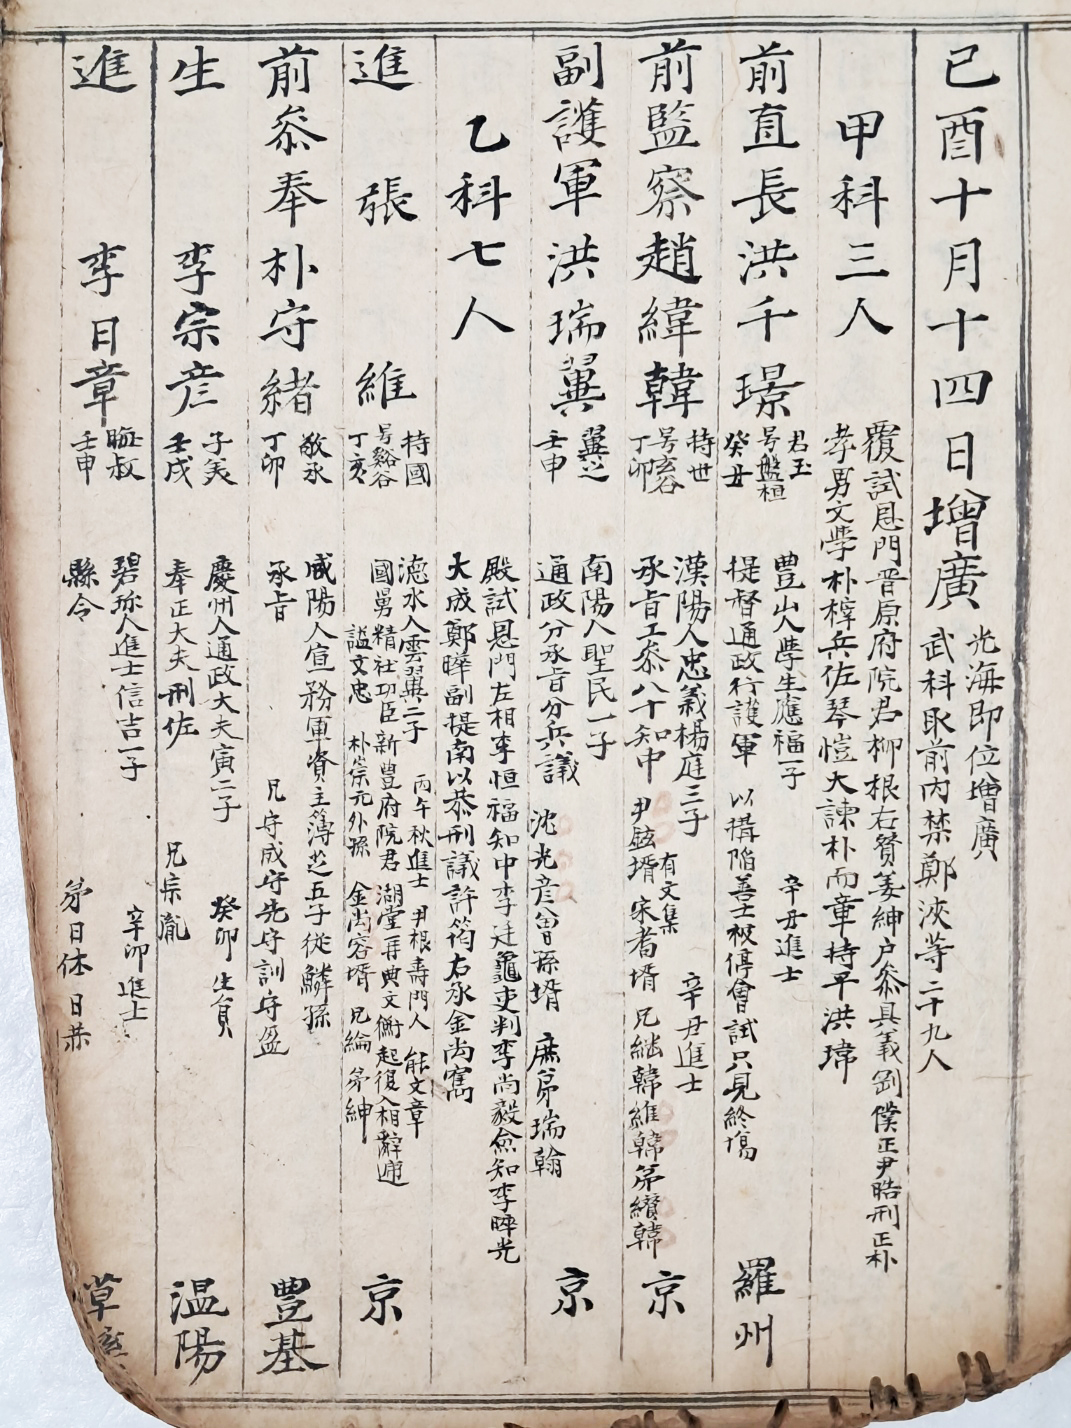 己酉十月十四日增廣
光海即位增廣
武科取前內禁鄭浹等二十九人
甲科三人
覆試恩門晋原府院君柳根右贊姜紳户叅具義剛僕正尹晧刑正朴
孝男文學朴榟兵佐琴愷大諫朴而章持平洪瑋
前直長洪千璟
君玉
号盤桓
癸丑
豊山人學生應福一子
辛丑進士
提督通政行護軍
以搆陷善士被停會試只見終塲
羅州
前監察趙緯韓
持世
号玄谷
丁卯
漢陽人忠義楊庭三子
有文集
辛丑進士
承旨工叅八十知中
尹鉉壻
宋耆壻
兄繼韓維韓弟纘韓
京
副護軍洪瑞翼
翼之
壬申
南陽人聖民一子
通政分承旨分兵議
沈光彦曾孫壻
庶弟瑞翰
京
乙科七人
殿試恩門左相李恒福知中李廷龜吏判李尚毅僉知李睟光
大成鄭曄副提南以恭刑議許筠右承金尚寯
進
張維
持國
号谿谷
丁亥
德水人雲翼二子
丙午秋進士
尹根壽門人
能文章
國舅精社功臣新豊府院君
湖堂再典文衡起復入相辭遞
謚文忠
朴崇元外孫
金尚容壻
兄綸
弟紳
京
前叅奉朴守緒
敬承
丁卯
咸陽人宣務軍資主簿芝五子從鱗孫
承旨
兄守成守先守訓守盈
豊基
生
李宗彦
子美
壬戌
慶州人通政大夫寅二子
癸卯生負
奉正大夫刑佐
兄宗胤
温陽
進
李日章
晦叔
壬申
碧珎人進士信吉一子
辛卯進士
縣令
弟日休日恭
草